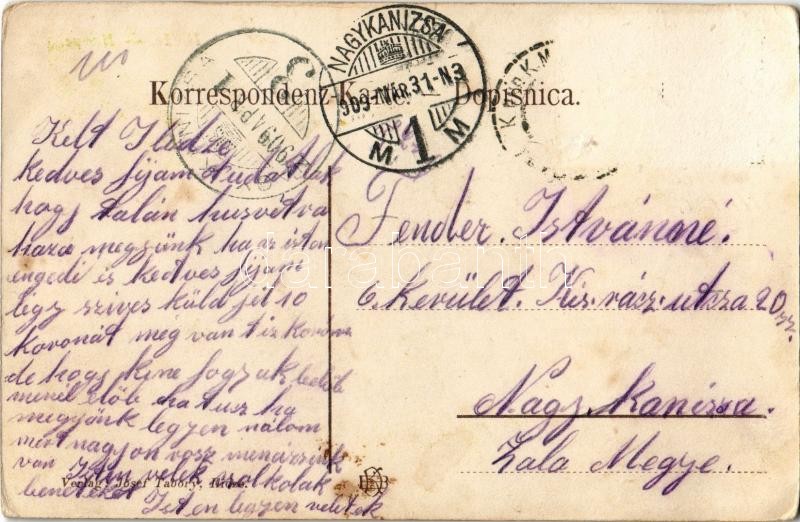 Korrespondenz-Karte. — Dopisnica.
NAGYKANIZSA
909 MÁR. 31-N3
M 1 M
Kelt Ilidze
kedves fijam tudatlak
hogy talán husvetra
haza megyünk ha az isten
engedi és kedves fijam
légy szives küld jél 10
koronát meg van tiz korona
de hogy kine fogyak
menél előb ha tusz ha
megyünk legyen nálom
mert nagyon rosz menázsink
van Isten velek
benteket Isten legyen veletek
Fender. Istvánné.
6. Kerület. Kis. rácz. utcza 20 sz.
Nagy. Kanizsa.
Zala Megye.
Verlag: Josef Tabory, Ilidze.
darabanth